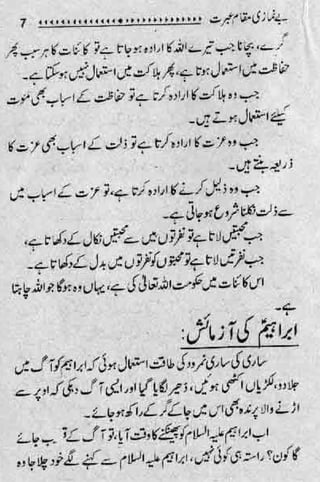 بے نمازی مقام عبرت 7
گرے، بچانا جب تیرے اللہ کا ارادہ ہو جاتا ہے تو کائنات کا ہر سبب پھر
حفاظت میں استعمال ہوتا ہے، پھر ہلاکت میں استعمال نہیں ہو سکتا ہے۔
جب وہ ہلاکت کا ارادہ کرتا ہے تو حفاظت کے اسباب بھی موت
کیلئے استعمال ہوتے ہیں۔
جب وہ عزت کا ارادہ کرتا ہے تو ذلت کے اسباب بھی عزت کا
ذریعہ بنتے ہیں۔
جب وہ ذلیل کرنے کا ارادہ کرتا ہے، تو عزت کے اسباب میں
سے ذلت نکلنا شروع ہو جاتی ہے۔
جب محبتیں لاتا ہے تو نفرتوں میں سے محبتیں نکال کے دکھاتا ہے،
جب نفرتیں لاتا ہے تو محبتوں کو نفرتوں میں بدل کے دکھاتا ہے۔
اس کائنات میں حکومت اللہ تعالیٰ کی ہے، یہاں وہ ہوگا جو اللہ چاہتا
ہے۔
ابراہیمؑ کی آزمائش:
ساری کی ساری نمرود کی طاقت استعمال ہوئی کہ ابراہیم کو آگ میں
جلا دو، لکڑیاں اکٹھی ہوئیں، ڈھیر لگایا گیا اور ایسی آگ دہکی کہ اوپر سے
اڑنے والا پرندہ بھی اس میں جا کے گر کے راکھ ہو جائے۔
اب ابراہیم علیہ السلام کو پھینکنے کا وقت آیا، تو آگ کے قریب جائے
گا کون؟ راستہ ہی کوئی نہیں، ابراہیم علیہ السلام سے کہنے لگے خود چلا جا وہ